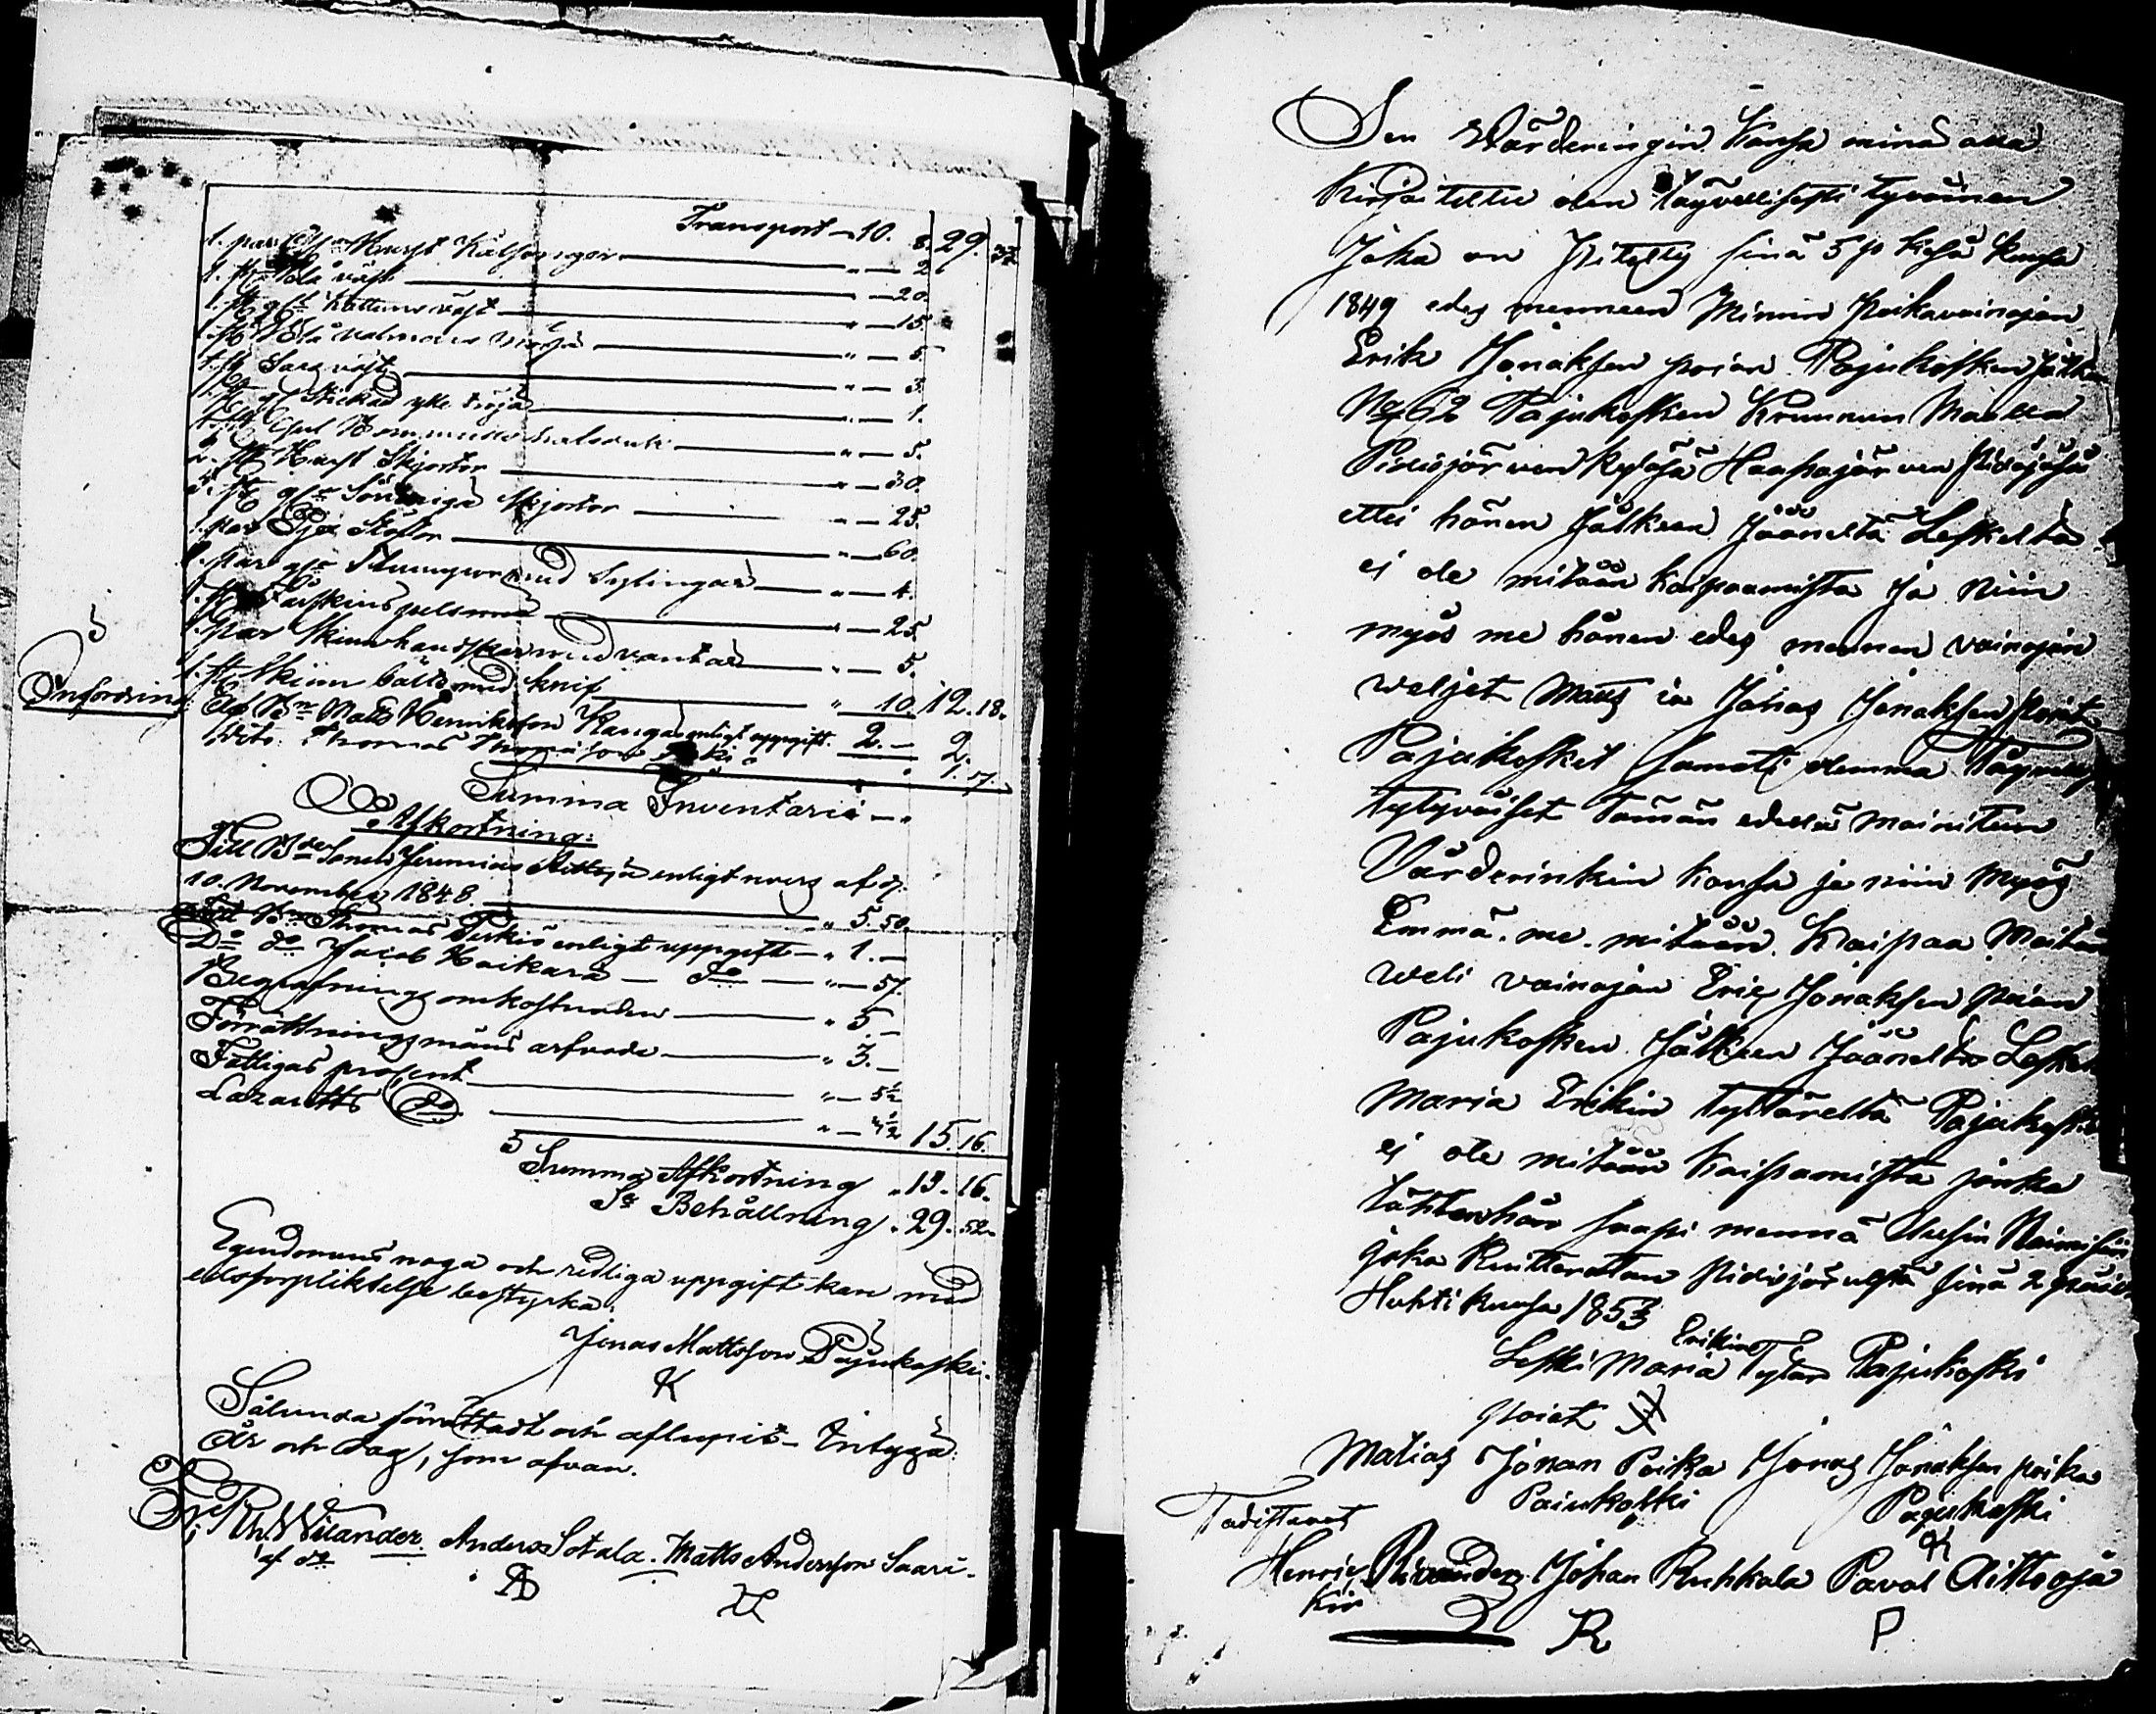 Transport 10. 8. 29.
1. par Hvarst Kalsonger " — 2
1. st. blå väst " — 20.
1. st. gl. kattuns väst " — 15.
1. st. blå valmars tröja " — 5.
1. st. Sars väst " — 3.
1. st. gl. Stickad ylle tröja " — 1.
1. st. Gul Bommulls halsduk " — 5.
2. st. Hvarst Skjortor " — 30.
2. st. gl. Söndriga Skjortor " — 25.
1. par Stöflor " — 60.
1. par gl. Strumpor med Sylingar " — 4.
1. st. Fårskins pels " — 25.
1. par Skinnhandskar med vantar " — 5.
1. st. Skinn bälte med knif " 10. 12. 18.
Infordring:
Matts Henriksson Kangas enligt uppgift. 2. — 2.
Dito Thomas 1. 57.
Summa Inventarii — "
Afkortning:
Till Jeremias Aittoja enligt revers af d.
10. November 1848 " 5. 50.
Till Thomas enligt uppgift — " 1. —
Do do Jacob Haikara — do — " — 57.
Begrafnings omkostnader " 5. —
Förrättningsmäns arfvode " 3. —
Fattigas procent " — 5½
Lazaretts do " — 4½ 15. 16.
Summa Afkortning " 15. 16.
Sr Behållning " 29. 52.
Egendomens noga och redliga uppgift kan med
edsförpliktelse bestyrka.
Jonas Mattsson Pajukoski.
K
Sålunda förrättadt och aflupit — Intyga
år och dag, som ofvan.
Wilander. Anders Sotala. Matts Andersson Saari.
af do
Sen Wärderingin kansa minä alla
Kirjoitettu olen täyvellisesti tyyväinen
Joka on Pitetty sinä 5 p kesä kuusa
1849 edes menneen Minun poikavainajan
Erik Jonaksen pojan Pajukosken jälken
No 62 Pajukosken Krunnun Maalla
Pidisjärwen kyläsä Haapajärwen Pitäjäsä
ettei hänen Jälkeen Jääneltä Leskeltä
ei ole mitään kaipaamista ja niin
myös me hänen edes mennen vainajan
weljet Mats ia Johas Jonaksen pojat
Pajukosket samati olemma Täyvelisesti
tytyväiset tämän edellä mainitun
Värderinkin kansa ja niin myös
Emmä me mitään Kaipaa Meitän
weli vainajan Eric Jonaksen pojan
Pajukosken Jälkeen Jääneltä Leskeltä
Maria Erikin tyttäreltä Pajukoskelta
ei ole mitään kaipamista jonka
tähten hän saapi mennä Uusin Naimisiin
joka Kuitterattan Pidisjärvellä sinä 2 päivä
Huhti kuusa 1853
Leski Maria Erikin Tytär Pajukoski
pojat
Matias Jonan Poika Jonas Jonaksen poika
Pajukoski Pajukoski
K
Todistavat
Henric Johan Ruhkala Pavol Aittooja
R P